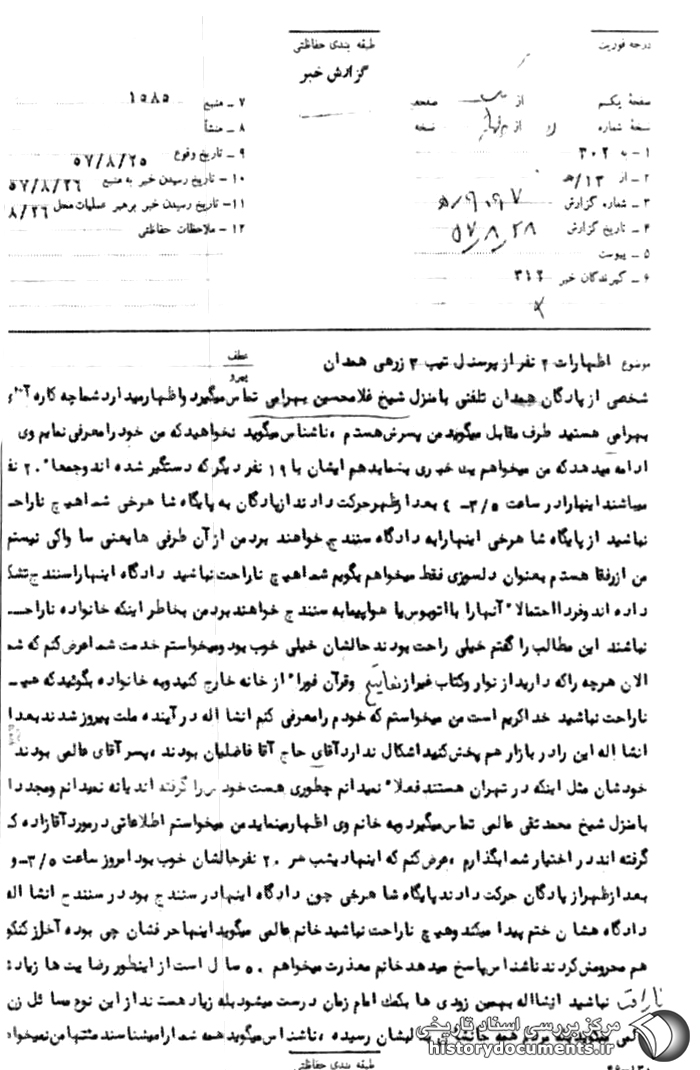 درجه فوریت
طبقه بندی حفاظتی
گزارش خبر
صفحهٔ یکم از صفحه
نسخهٔ شماره از نسخه
۱ – به ۳۰۲
۲ – از ۱۳/هـ
۳ – شماره گزارش
۴ – تاریخ گزارش ۵۷/۸/۲۸
۵ – پیوست
۶ – گیرندگان خبر ۳۱۲
۷ – منبع ۱۵۸۵
۸ – منشأ
۹ – تاریخ وقوع ۵۷/۸/۲۵
۱۰ – تاریخ رسیدن خبر به منبع ۵۷/۸/۲۶
۱۱ – تاریخ رسیدن خبر برهبر عملیات محل ۸/۲۶
۱۲ – ملاحظات حفاظتی
موضوع اظهارات ۲ نفر از پرسنل تیپ ۳ زرهی همدان
عطف
پیرو
شخصی از پادگان همدان تلفنی با منزل شیخ غلامحسین بهرامی تماس میگیرد و اظهار میدارد شما چه کاره آقای
بهرامی هستید طرف مقابل میگوید من پسرش هستم ، ناشناس میگوید نخواهید که من خود را معرفی نمایم وی
ادامه میدهد که من میخواهم یک خبری بشما بدهم ایشان با ۱۹ نفر دیگر که دستگیر شده اند و جمعا" ۲۰
میباشند اینها را در ساعت ۳/۵ – ۴ بعد از ظهر حرکت دادند از پادگان به پایگاه شاهرخی شما هیچ ناراحـ
نباشید از پایگاه شاهرخی اینها را به دادگاه سنندج خواهند برد من از آن طرفی ها یعنی ساواکی نیستم
من از رفقا هستم بعنوان دلسوزی فقط میخواهم بگویم شما هیچ ناراحت نباشید دادگاه اینها را سنندج تشکـ
داده اند و فردا احتمالا" آنها را با اتوبوس یا هواپیما به سنندج خواهند برد من بخاطر اینکه خانواده ناراحـ
نباشند این مطالب را گفتم خیلی راحت بودند حالشان خیلی خوب بود و میخواستم خدمت شما عرض کنم که شما
الان هرچه را که دارید از نوار و کتاب غیر از و قرآن فورا" از خانه خارج کنید و به خانواده بگوئید که هیـ
ناراحت نباشید خدا کریم است من میخواستم که خودم را معرفی کنم انشا اله در آینده ملت پیروز شدند بعدا
انشا اله این را در بازار هم پخش کنید اشکال ندارد آقای حاج آقا فاضلیان بودند ، پسر آقای عالمی بودند
خودشان مثل اینکه در تهران هستند فعلا" نمیدانم چطوری هست خودش را گرفته اند یا نه نمیدانم و مجددا
با منزل شیخ محمد تقی عالمی تماس میگیرد و به خانم وی اظهار مینماید من میخواستم اطلاعاتی در مورد آقازاده کـ
گرفته اند در اختیار شما بگذارم ، عرض کنم که اینها دیشب هر ۲۰ نفر حالشان خوب بود امروز ساعت ۳/۵ –
بعد از ظهر از پادگان حرکت دادند پایگاه شاهرخی چون دادگاه اینها در سنندج بود در سنندج انشا اله
دادگاه هشان ختم پیدا میکند و هیچ ناراحت نباشید خانم عالمی میگوید اینها حرفشان چی بوده آخر از کنکور
هم محرومش کردند ناشناس پاسخ میدهد خانم معذرت میخواهم ۵۰ سال است از اینطور رضایت ها زیاد
ناراحت نباشید انشااله بهمین زودی ها بکمک امام زمان درست میشود بله زیاد هستند از این نوع مسائل زن
میگوید مردم همه لبشان رسیده ، ناشناس میگوید همه شما را میشناسند منتها من نمیخواهـ
مرکز بررسی اسناد تاریخی
historydocuments.ir
طبقه بندی حفاظتی